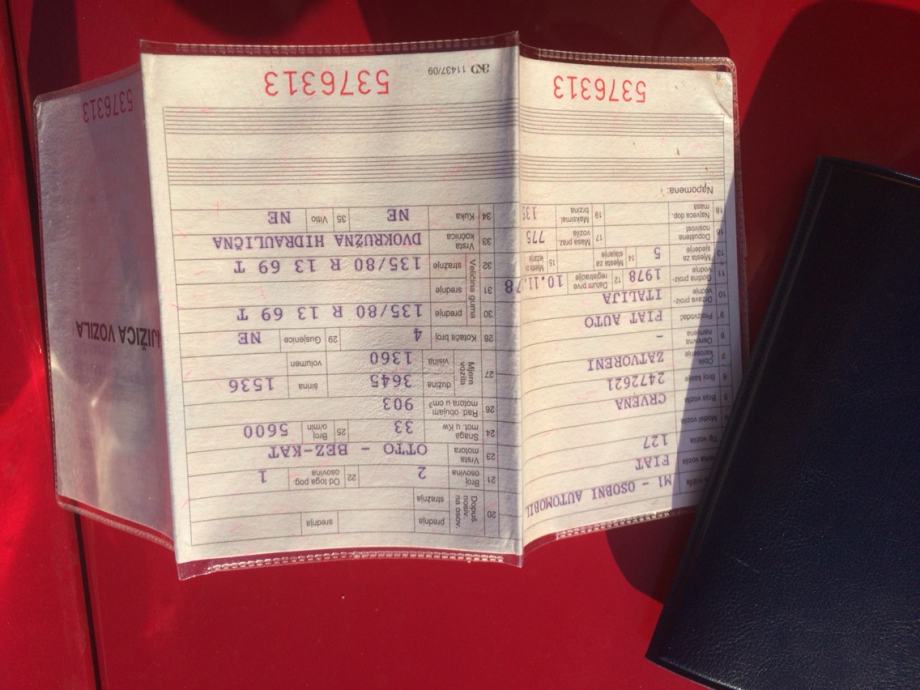 M1 - OSOBNI AUTOMOBIL
FIAT
Tip vozila 127
4 Model vozila
5 Boja vozila CRVENA
6 Broj šasije 2472621
7 Oblik karoserije ZATVORENI
8 Osnovna namjena -
9 Proizvođač FIAT AUTO
10 Država proizvodnje ITALIJA
11 Godina proiz vodnje 1978 12 Datum prve registracije 10.11.78
13 Mjesta za sjedenje 5 14 Mjesta za stajanje 15 Mjesta za ležanje
16 Dopuštena nosivost 17 Masa praz. vozila 775
18 Najveća dop. masa 19 Maksimal. brzina
Napomena:
5376313
20 Dopuš. nosiv. na osov. prednja srednja
stražnja
21 Broj osovina 2 22 Od toga pog. osovina 1
23 Vrsta motora OTTO - BEZ-KAT
24 Snaga mot. u Kw 33 25 Broj o/min 5600
26 Rad. obujam motora u cm³ 903
27 Mjere vozila dužina 3645 širina 1536
visina 1360 volumen
28 Kotača broj 4 29 Gusjenice NE
30 Veličina guma prednje 135/80 R 13 69 T
31 srednje
32 stražnje 135/80 R 13 69 T
33 Vrsta kočnica DVOKRUŽNA HIDRAULIČNA
34 Kuka NE 35 Vitlo NE
11437/09
5376313
JUŽICA VOZILA
5376313